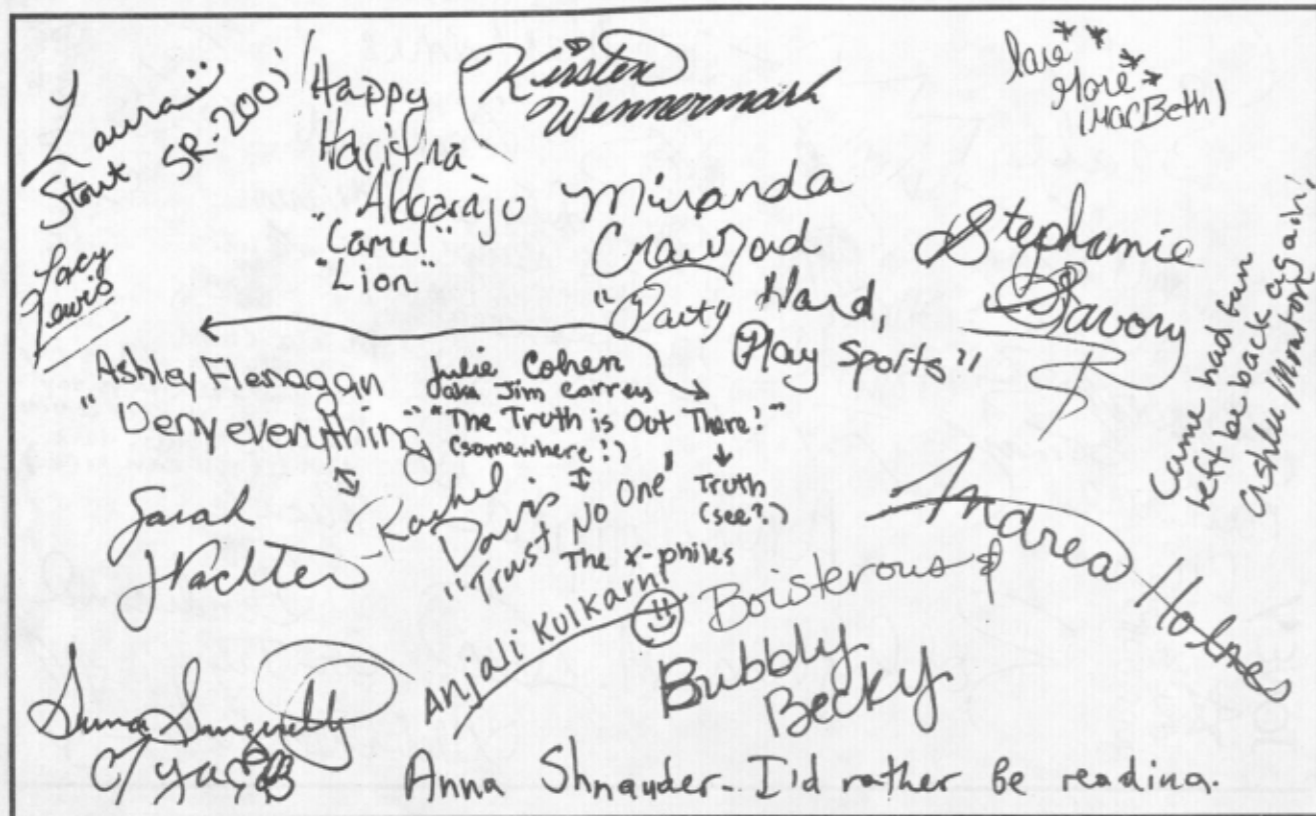 Laura :)
Stout SR-200'!
Happy
Haritha
"Camel"
"Lion"
Kirsten
Wennermark
(MacBeth)
Lacy
Lewis
Miranda
Crawford
"Party Hard,
Play Sports"
Stephanie
Savory
Came had fun
left be back again!
Ashley Flenagan
"Deny everything"
Julie Cohen
aka Jim Carrey
"The Truth is Out There!"
(somewhere!)
Sarah
Wachter
"Trust No One" Truth
(see?)
The x-philes
Andrea Holmes
Anjali Kulkarni
Boisterous &
Bubbly
Becky
Suma
Anna Shnauder - I'd rather be reading.